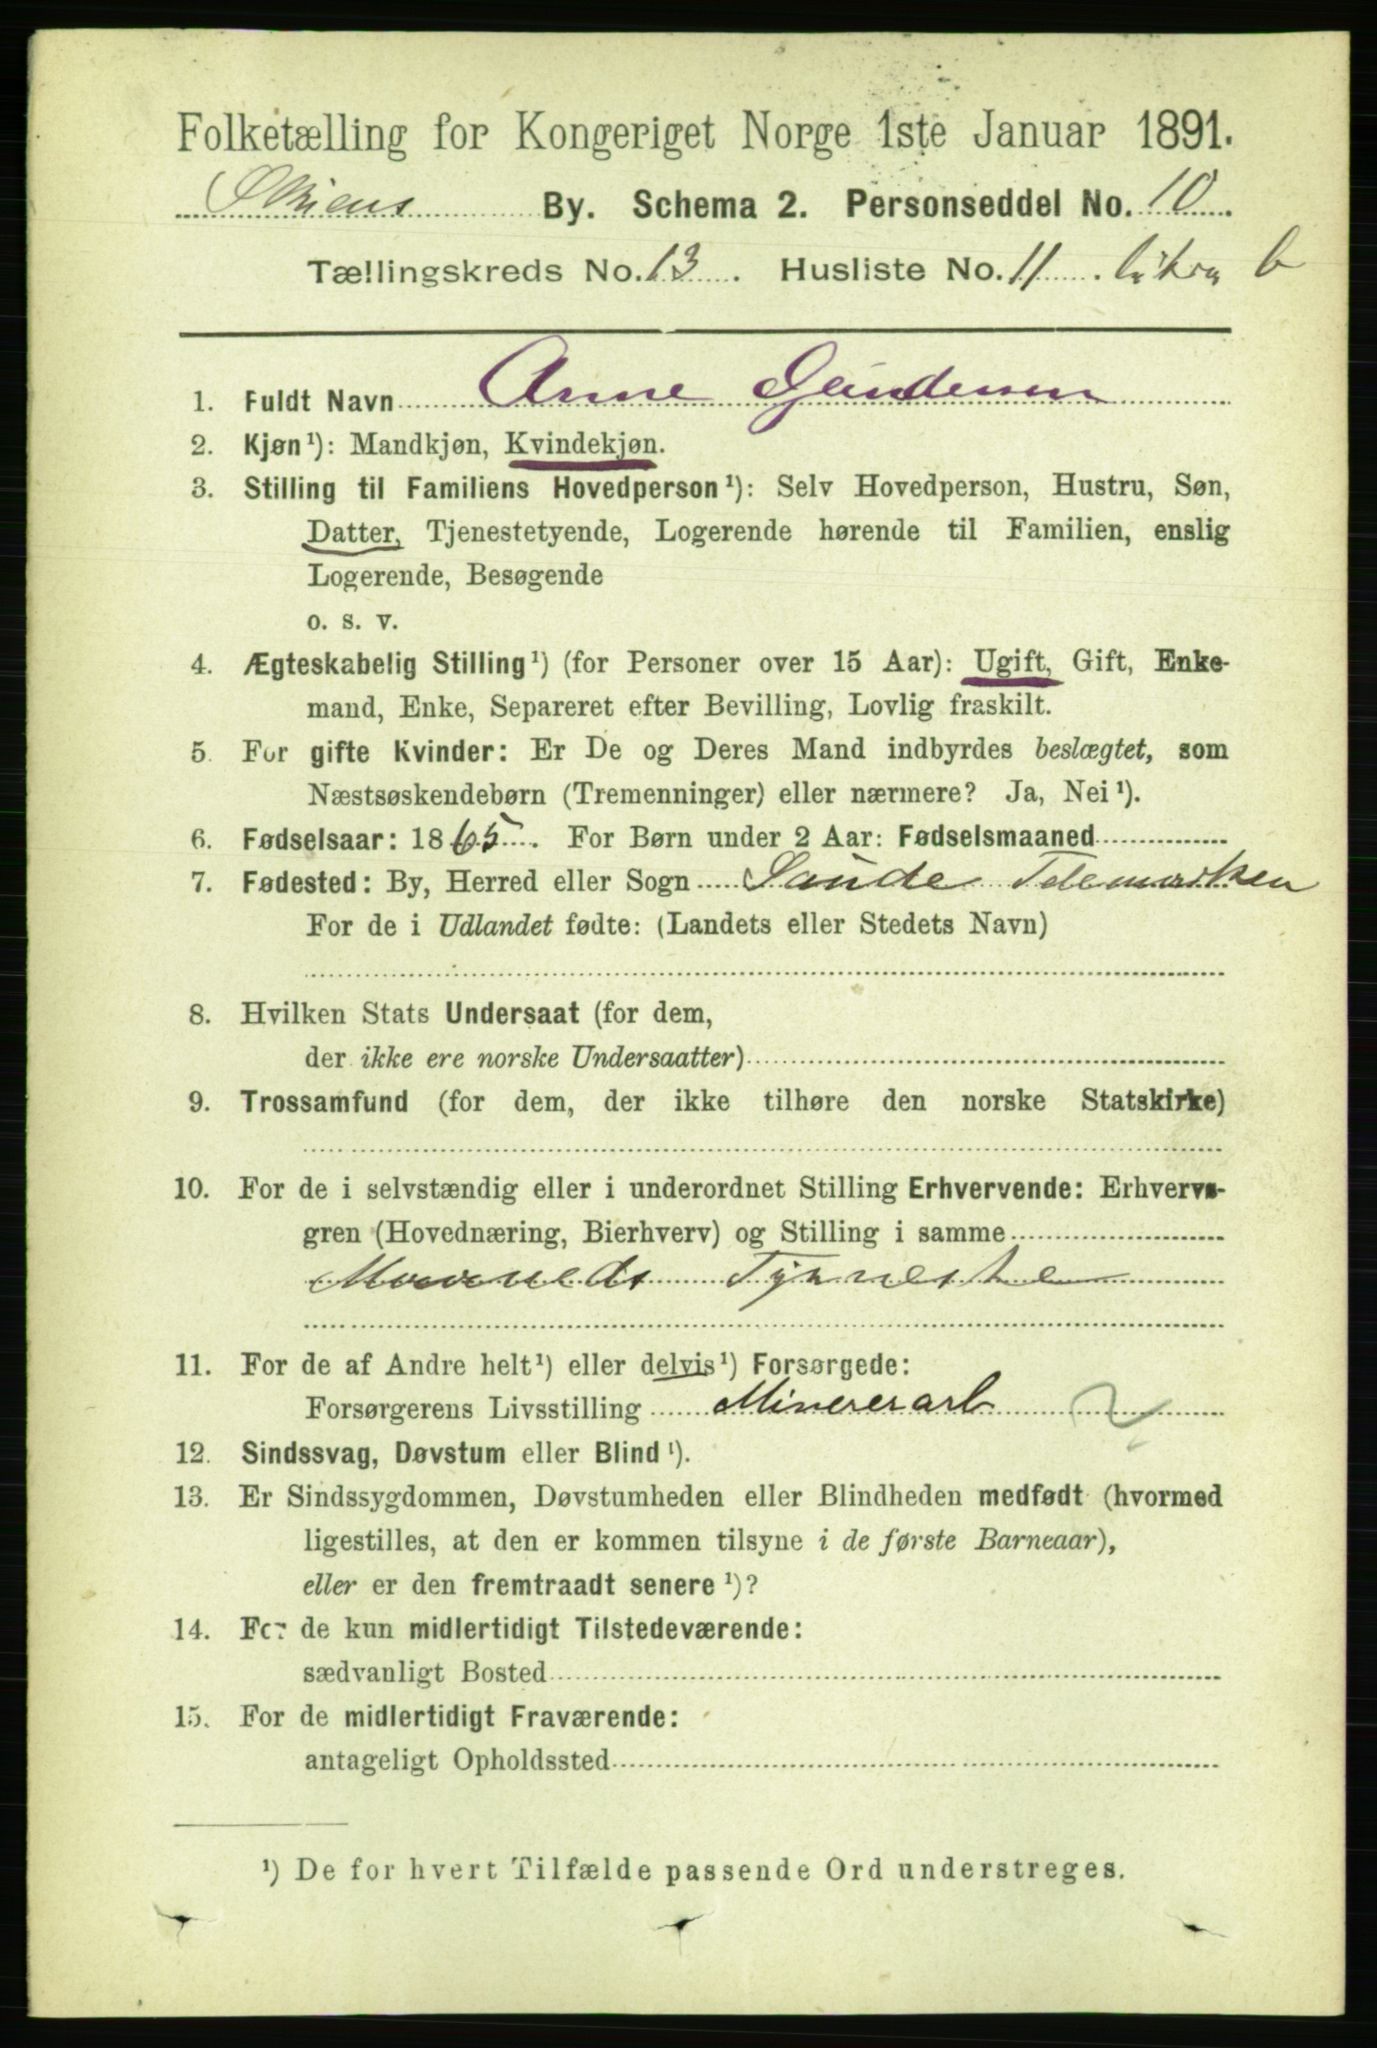 Folketælling for Kongeriget Norge 1ste Januar 1891.
Skiens By. Schema 2. Personseddel No. 10
Tællingskreds No. 13. Husliste No. 11. litra b
1. Fuldt Navn Anne Gundersen
2. Kjøn¹): Mandkjøn, Kvindekjøn.
3. Stilling til Familiens Hovedperson¹): Selv Hovedperson, Hustru, Søn,
Datter, Tjenestetyende, Logerende hørende til Familien, enslig
Logerende, Besøgende
o. s. v.
4. Ægteskabelig Stilling¹) (for Personer over 15 Aar): Ugift, Gift, Enke-
mand, Enke, Separeret efter Bevilling, Lovlig fraskilt.
5. For gifte Kvinder: Er De og Deres Mand indbyrdes beslægtet, som
Næstsøskendebørn (Tremenninger) eller nærmere? Ja, Nei¹).
6. Fødselsaar: 1865. For Børn under 2 Aar: Fødselsmaaned
7. Fødested: By, Herred eller Sogn Saude Telemarken
For de i Udlandet fødte: (Landets eller Stedets Navn)
8. Hvilken Stats Undersaat (for dem,
der ikke ere norske Undersaatter)
9. Trossamfund (for dem, der ikke tilhøre den norske Statskirke)
10. For de i selvstændig eller i underordnet Stilling Erhvervende: Erhvervs-
gren (Hovednæring, Bierhverv) og Stilling i samme
11. For de af Andre helt¹) eller delvis¹) Forsørgede:
Forsørgerens Livsstilling Minererarb
12. Sindssvag, Døvstum eller Blind¹).
13. Er Sindssygdommen, Døvstumheden eller Blindheden medfødt (hvormed
ligestilles, at den er kommen tilsyne i de første Barneaar),
eller er den fremtraadt senere¹)?
14. For de kun midlertidigt Tilstedeværende:
sædvanligt Bosted
15. For de midlertidigt Fraværende:
antageligt Opholdssted
¹) De for hvert Tilfælde passende Ord understreges.